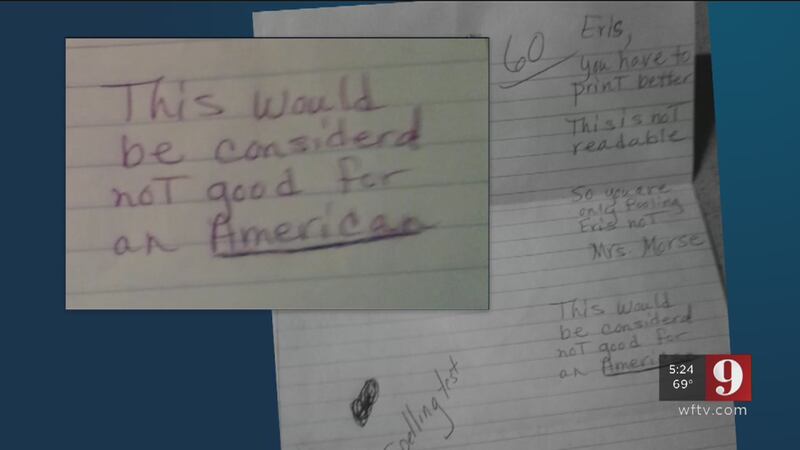 This would
be considerd
noT good for
an American
60
Eris,
you have to
prinT better
This is noT
readable
So you are
only fooling
Eris noT
Mrs. Morse
This would
be considerd
noT good for
an American
Spelling test
5:24
69°
9
wftv.com